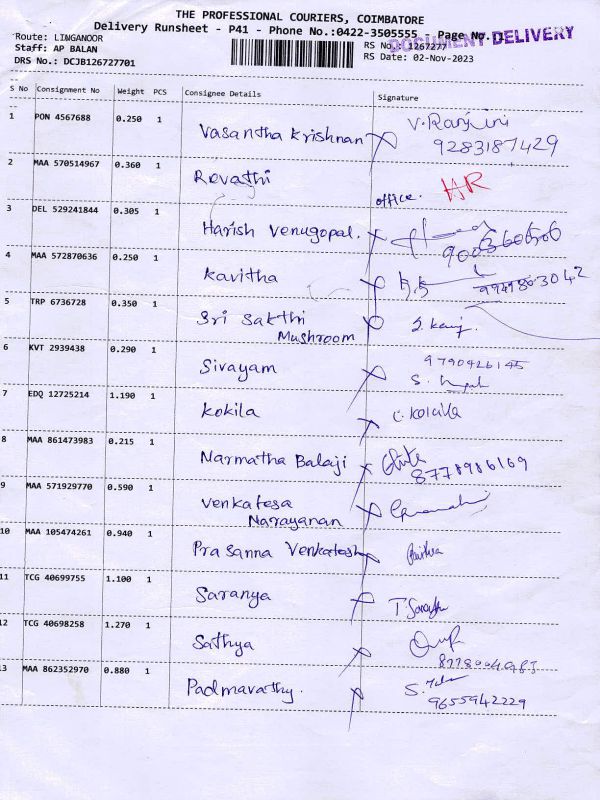 THE PROFESSIONAL COURIERS, COIMBATORE
Delivery Runsheet - P41 - Phone No.:0422-3505555 - Page No.
DOCUMENT DELIVERY
Route: LINGANOOR
RS No.: 1267277
Staff: AP BALAN
RS Date: 02-Nov-2023
DRS No.: DCJB126727701
S No Consignment No Weight PCS Consignee Details Signature
1 PON 4567688 0.250 1 Vasantha Krishnan V. Ranjini
9283187429
2 MAA 570514967 0.360 1 Revathi office. HR
3 DEL 529241844 0.305 1 Harish Venugopal.
4 MAA 572870636 0.250 1 Kavitha
5 TRP 6736728 0.350 1 Sri Sakthi
Mushroom
6 KVT 2939438 0.290 1 Sivayam 9790426145
7 EDQ 12725214 1.190 1 Kokila C. Kokila
8 MAA 861473983 0.215 1 Narmatha Balaji
8778986169
9 MAA 571929770 0.590 1 Venkatesa
Narayanan
10 MAA 105474261 0.940 1 Prasanna Venkatesh
11 TCG 40699755 1.100 1 Saranya
12 TCG 40698258 1.270 1 Sathya
13 MAA 862352970 0.880 1 Padmavathy.
9655942229